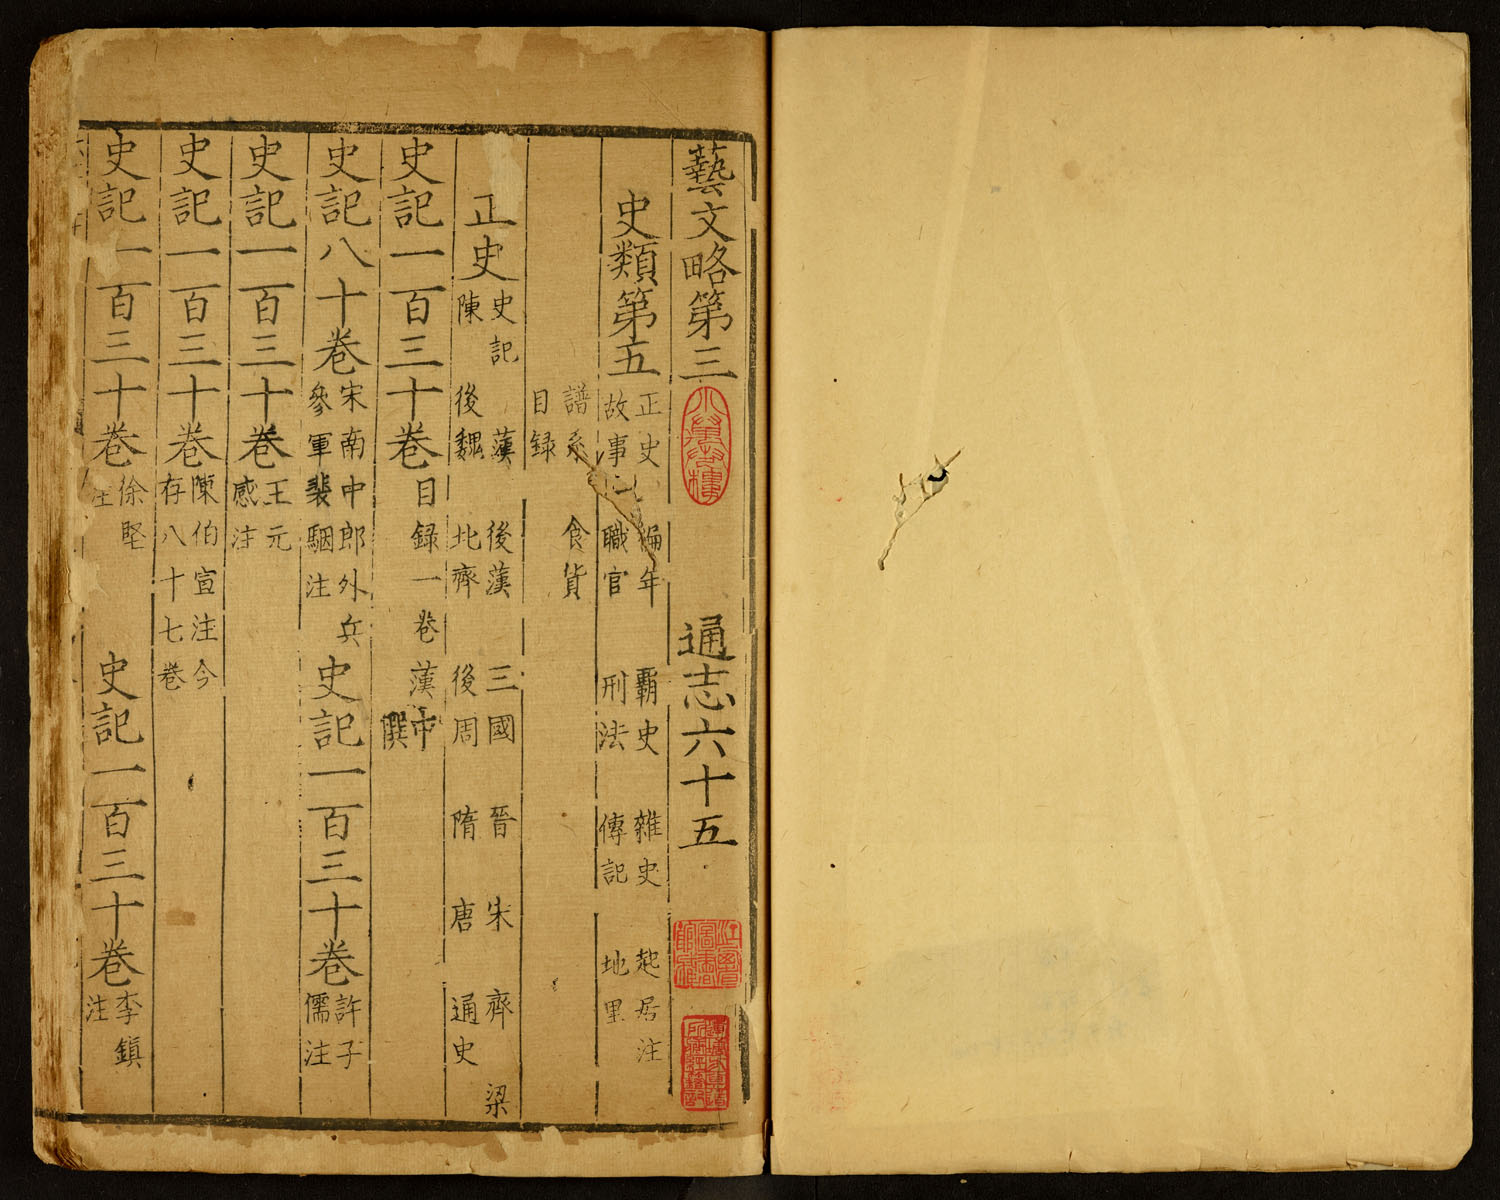 藝文略第三 通志六十五
史類第五 正史 編年 霸史 雜史 起居注
故事 職官 刑法 傳記 地里
譜系 食貨
目録
正史 史記 漢 後漢 三國 晉 宋 齊 梁
陳 後魏 北齊 後周 隋 唐 通史
史記一百三十卷 目録一卷漢中
撰
史記八十卷 宋南中郎外兵
參軍裴駰注
史記一百三十卷 許子
儒注
史記一百三十卷 王元
感注
史記一百三十卷 陳伯宣注今
存八十七卷
史記一百三十卷 徐堅
注
史記一百三十卷 李鎮
注